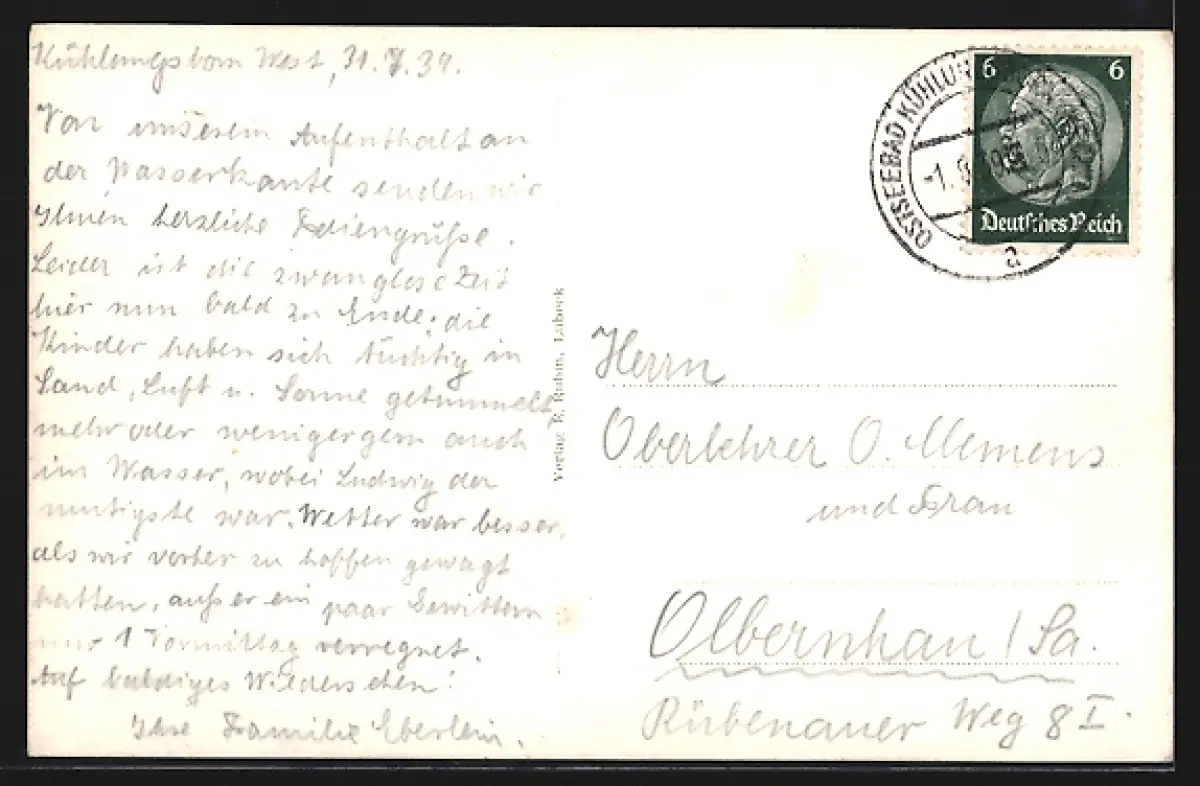 Kühlungsborn West, 31.7.39.
Von unserem Aufenthalt an
der Wasserkante senden wir
Ihnen herzliche Feriengrüße.
Leider ist die zwanglose Zeit
hier nun bald zu Ende; die
Kinder haben sich tüchtig in
Sand, Luft u. Sonne getummelt
mehr oder weniger gern auch
im Wasser, wobei Ludwig der
mutigste war. Wetter war besser,
als wir vorher zu hoffen gewagt
hatten, außer ein paar Gewittern
nur 1 Vormittag verregnet.
Auf baldiges Wiedersehen!
Ihre Familie Eberlein.
Verlag R. Rubin, Lübeck
OSTSEEBAD KÜHLUN
-1.
a
6 6
Deutsches Reich
Herrn
Oberlehrer O. Clemens
und Frau
Olbernhau / Sa.
Rübenauer Weg 8 I.